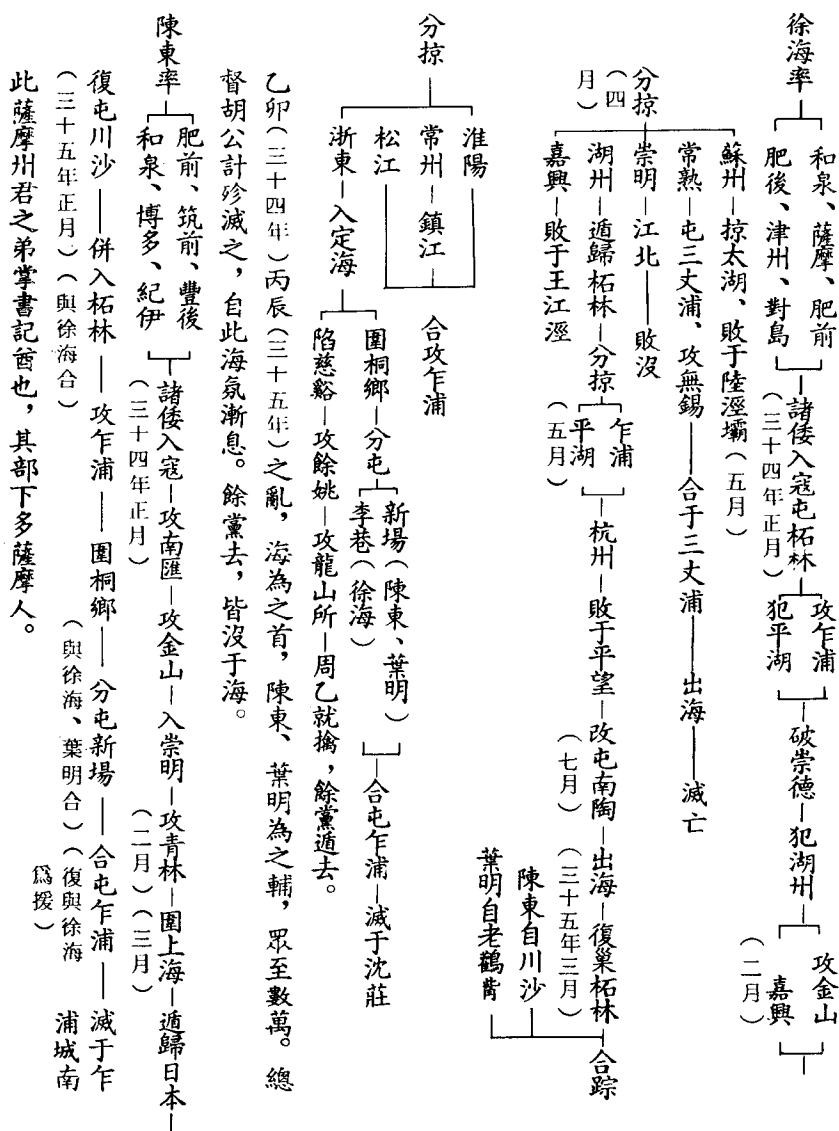 徐海率
和泉、薩摩、肥前
肥後、津州、對島
諸倭入寇屯柘林
（三十四年正月）
攻乍浦
犯平湖
破崇德
犯湖州
攻金山
（二月）
嘉興
分掠
（四月）
蘇州
掠太湖、敗于陸涇壩（五月）
常熟
屯三丈浦、攻無錫
合于三丈浦
出海
滅亡
崇明
江北
敗沒
湖州
遁歸柘林
分掠
（五月）
乍浦
平湖
杭州
敗于平望
改屯南陶
（七月）
出海
（三十五年三月）
復巢柘林
陳東自川沙
葉明自老鸛嘴
合踪
嘉興
敗于王江涇
分掠
淮陽
常州
鎮江
松江
合攻乍浦
浙東
入定海
圍桐鄉
分屯
新場（陳東、葉明）
李巷（徐海）
合屯乍浦
滅于沈莊
陷慈谿
攻餘姚
攻龍山所
周乙就擒，餘黨遁去。
乙卯（三十四年）丙辰（三十五年）之亂，海為之首，陳東、葉明為之輔，眾至數萬。總
督胡公計殄滅之，自此海氛漸息。餘黨去，皆沒于海。
陳東率
肥前、筑前、豐後
和泉、博多、紀伊
諸倭入寇
（三十四年正月）
攻南匯
攻金山
入崇明
（二月）
攻青林
（三月）
圍上海
遁歸日本
復屯川沙
（三十五年正月）
併入柘林
（與徐海合）
攻乍浦
圍桐鄉
分屯新場
（與徐海、葉明合）
合屯乍浦
（復與徐海為援）
滅于乍浦城南
此薩摩州君之弟掌書記酋也，其部下多薩摩人。